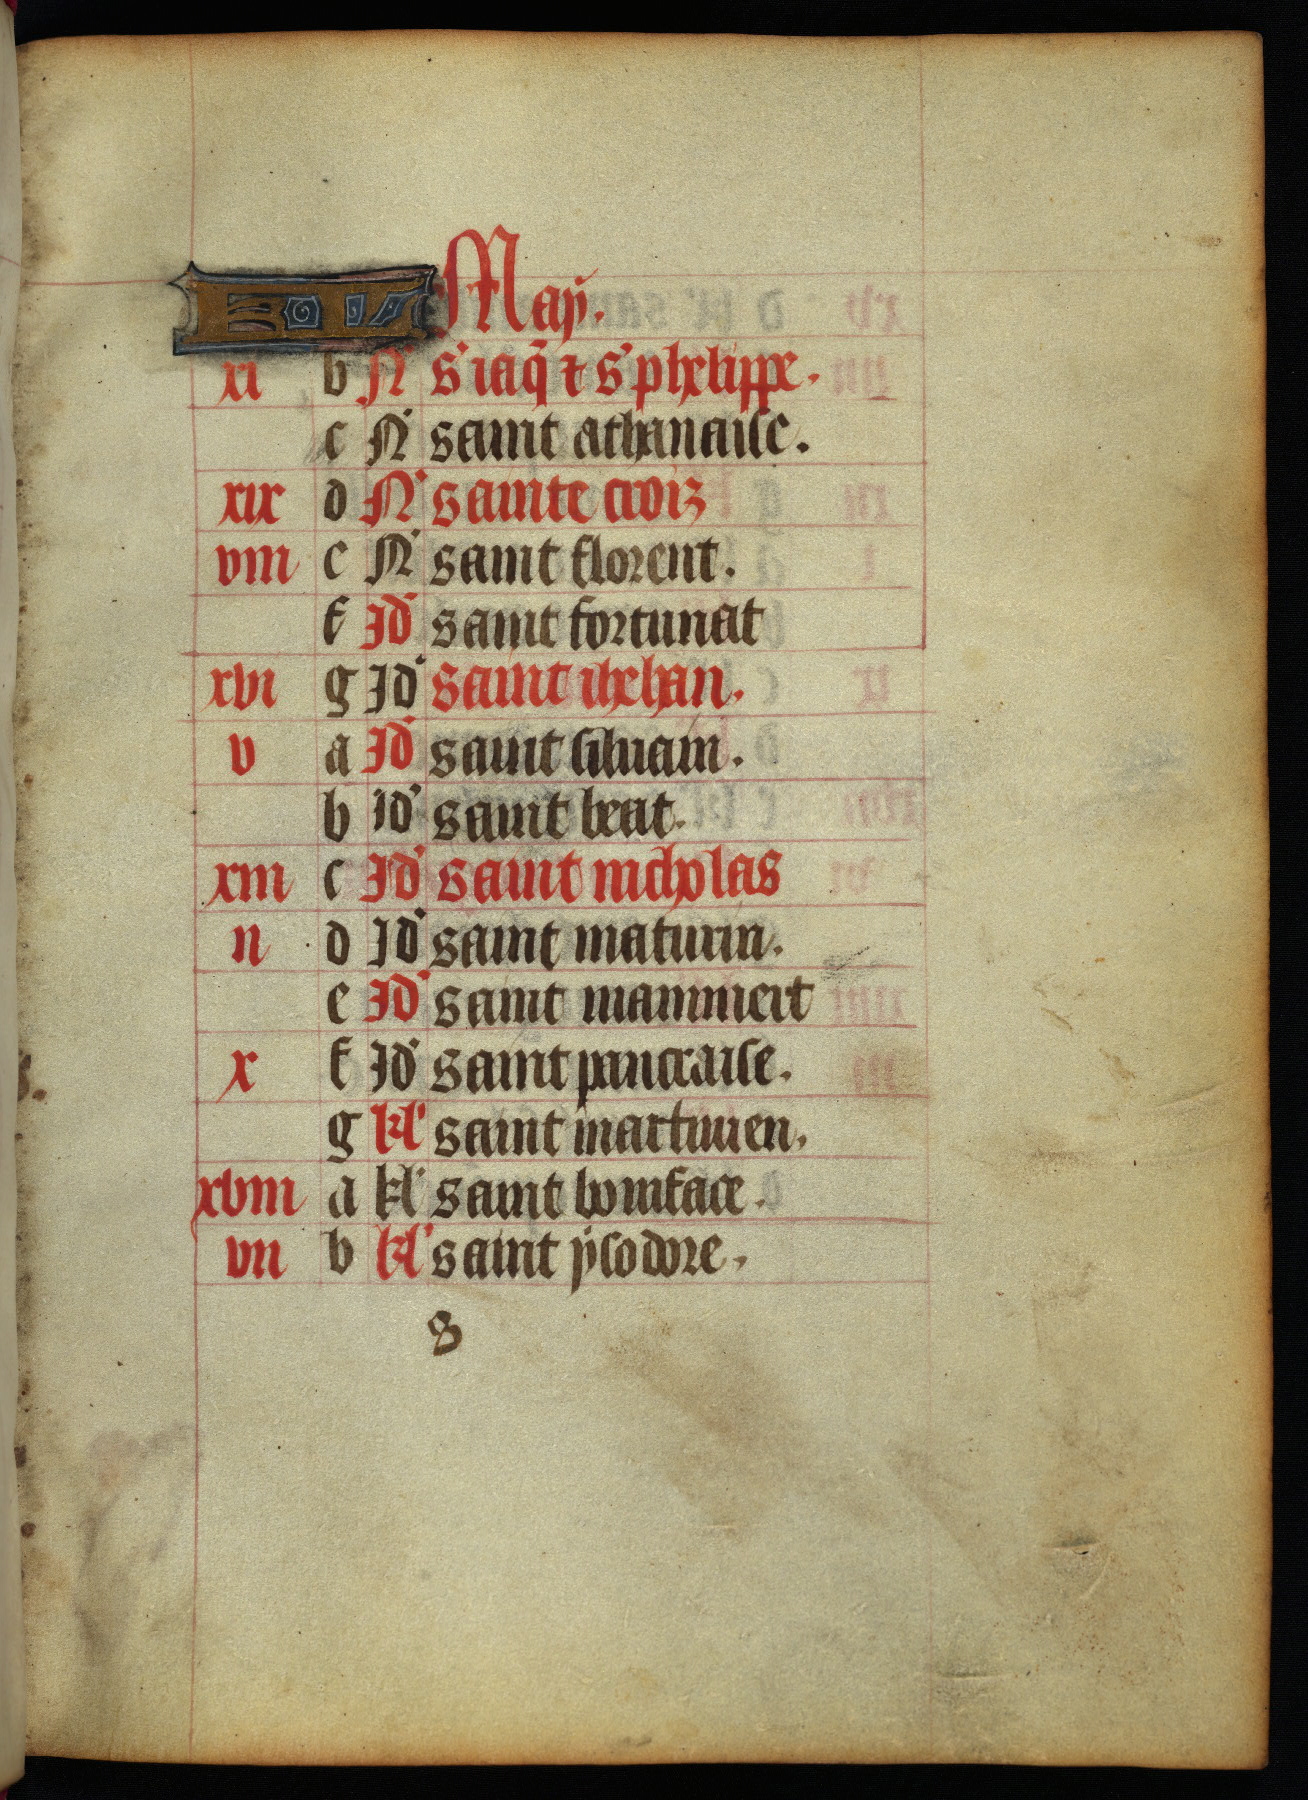 May.
xi b N' s' iaq̃ ⁊ s' phelippe.
c N' saint athanaise.
xix d N' sainte croiz
viii e N' saint florent.
f Id' saint fortunat
xvi g Id' saint ihehan.
v a Id' saint siluain.
b Id' saint beat.
xiii c Id' saint nicholas
ii d Id' saint maturin.
e Id' saint mammert
x f Id' saint pancraise.
g kl' saint martinien.
xviii a kl' saint boniface.
vii b kl' saint ysodore.